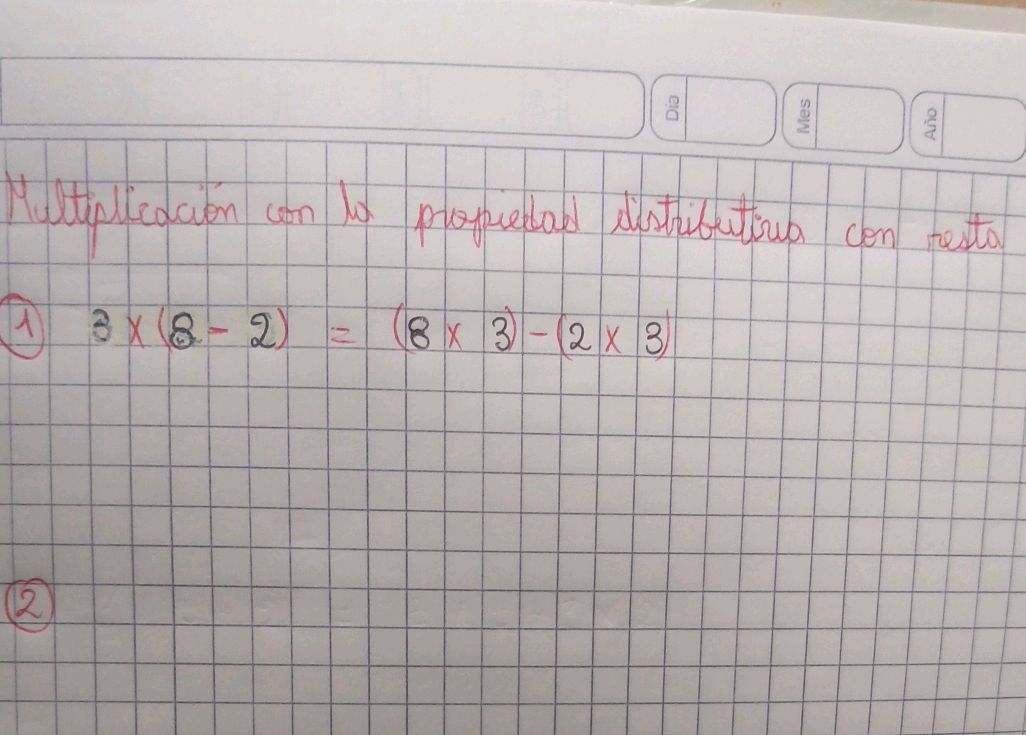 Día Mes Año
Multiplicación con la propiedad distributiva con resta
1 3 x (8 - 2) = (8 x 3) - (2 x 3)
2